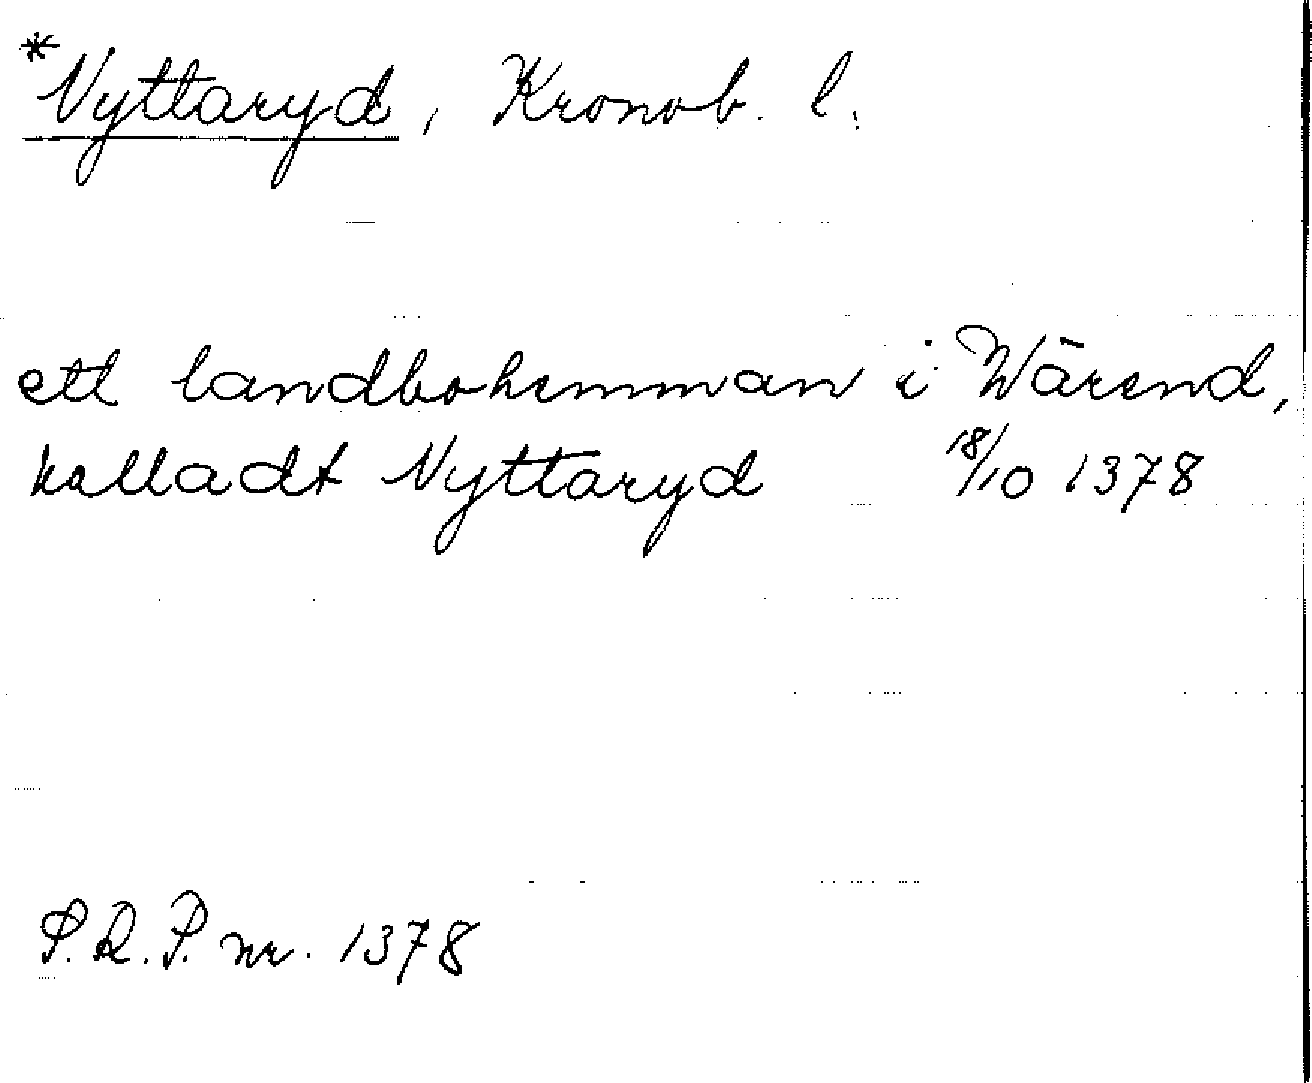 *Nyttaryd, Kronob. l.
ett landbohemman i Wärend,
kalladt Nyttaryd 18/10 1378
S.R.P. nr. 1378